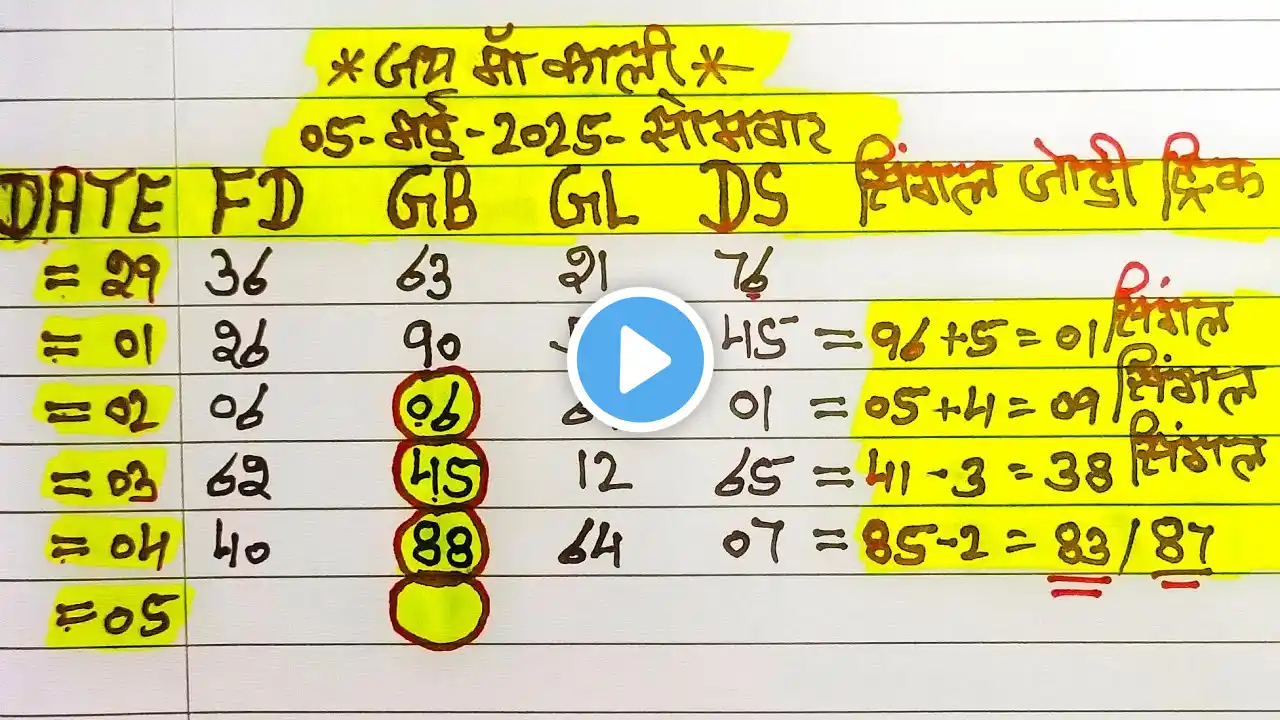 *जय माँ काली*
05-मई-2025-सोमवार
DATE FD GB GL DS सिंगल जोडी ट्रिक
= 29 36 63 21 76
= 01 26 90 45 = 96+5 = 01/सिंगल
= 02 06 06 01 = 05+4 = 09 सिंगल
= 03 62 45 12 65 = 41-3 = 38 सिंगल
= 04 40 88 64 07 = 85-2 = 83/87
= 05